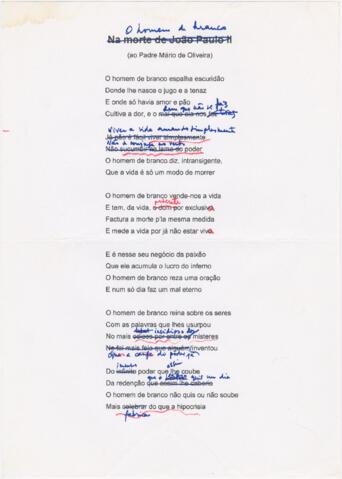 O homem de branco
Na morte de João Paulo II
(ao Padre Mário de Oliveira)
O homem de branco espalha escuridão
Donde lhe nasce o jugo e a tenaz
E onde só havia amor e pão
bem que não se faz
Cultiva a dor, e o mal que ela nos
Viver a vida amando simplesmente
Já não é fácil viver simplesmente
Não
Não sucumbir na lama do poder
O homem de branco diz, intransigente,
Que a vida é só um modo de morrer
O homem de branco vende-nos a vida
E tem, da vida, o dom por exclusiva
Factura a morte p'la mesma medida
E mede a vida por já não estar viva
E é nesse seu negócio da paixão
Que ele acumula o lucro do inferno
O homem de branco reza uma oração
E num só dia faz um mal eterno
O homem de branco reina sobre os seres
Com as palavras que lhes usurpou
No mais insidioso dos
misteres
Não foi mais feio que alguém/inventou
Do infinito poder que lhe coube
que quis um dia
Da redenção que assim lhe
O homem de branco não quis ou não soube
Mais celebrar do que a hipocrisia
fabricar